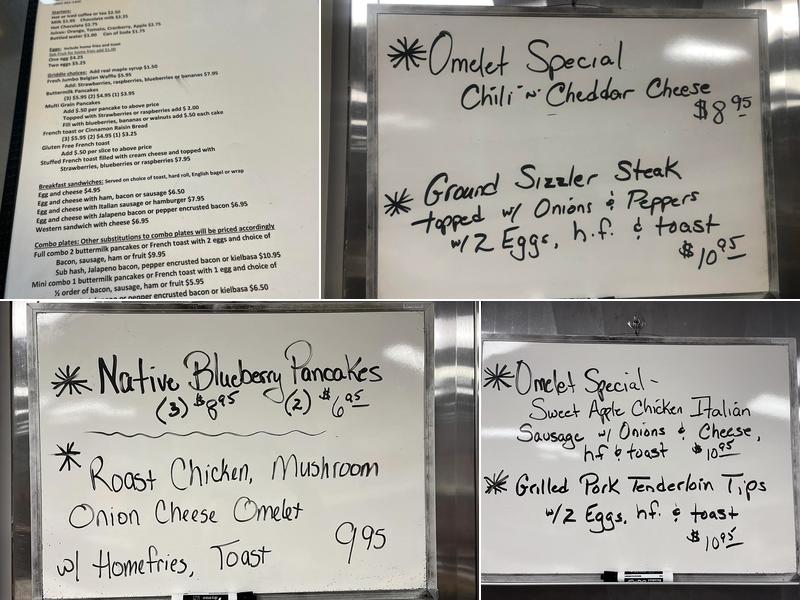 Starters:
Hot or iced coffee or tea $2.50
Milk $1.95 Chocolate milk $2.25
Hot Chocolate $2.75
Juices: Orange, Tomato, Cranberry, Apple $2.75
Bottled water $1.00 Can of Soda $1.75
Eggs: Include home fries and toast
Sub Fruit for home fries add $1.00
One egg $4.25
Two eggs $5.25
Griddle choices: Add real maple syrup $1.50
Fresh Jumbo Belgian Waffle $5.95
Add: Strawberries, raspberries, blueberries or bananas $7.95
Buttermilk Pancakes
(3) $5.95 (2) $4.95 (1) $3.95
Multi Grain Pancakes
Add $.50 per pancake to above price
Topped with Strawberries or raspberries add $ 2.00
Fill with blueberries, bananas or walnuts add $.50 each cake
French toast or Cinnamon Raisin Bread
(3) $5.95 (2) $4.95 (1) $3.25
Gluten Free French toast
Add $.50 per slice to above price
Stuffed French toast filled with cream cheese and topped with
Strawberries, blueberries or raspberries $7.95
Breakfast sandwiches: Served on choice of toast, hard roll, English bagel or wrap
Egg and cheese $4.95
Egg and cheese with ham, bacon or sausage $6.50
Egg and cheese with Italian sausage or hamburger $7.95
Egg and cheese with Jalapeno bacon or pepper encrusted bacon $6.95
Western sandwich with cheese $6.95
Combo plates: Other substitutions to combo plates will be priced accordingly
Full combo 2 buttermilk pancakes or French toast with 2 eggs and choice of
Bacon, sausage, ham or fruit $9.95
Sub hash, Jalapeno bacon, pepper encrusted bacon or kielbasa $10.95
Mini combo 1 buttermilk pancakes or French toast with 1 egg and choice of
½ order of bacon, sausage, ham or fruit $5.95
pepper encrusted bacon or kielbasa $6.50
Omelet Special
Chili ~n~ Cheddar Cheese
$8.95
Ground Sizzler Steak
topped w/ Onions & Peppers
w/2 Eggs, h.f. & toast
$10.95
Native Blueberry Pancakes
(3) $8.95 (2) $6.95
Roast Chicken, Mushroom
Onion Cheese Omelet
w/ Homefries, Toast 9.95
Omelet Special -
Sweet Apple Chicken Italian
Sausage w/ Onions & Cheese,
hf & toast $10.95
Grilled Pork Tenderloin Tips
w/2 Eggs, hf. & toast
$10.95